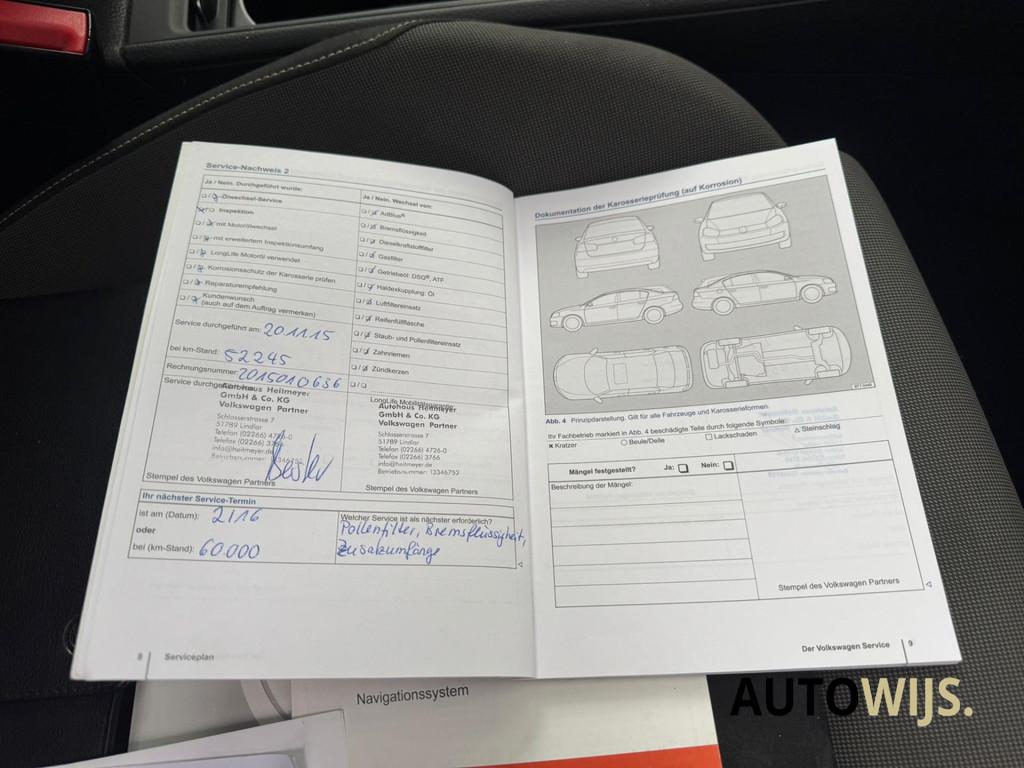 Service-Nachweis 2
Ja / Nein. Durchgeführt wurde:
Ölwechsel-Service
Inspektion
mit Motorölwechsel
mit erweitertem Inspektionsumfang
LongLife Motoröl verwendet
Korrosionsschutz der Karosserie prüfen
Reparaturempfehlung
Kundenwunsch
(auch auf dem Auftrag vermerken)
Ja / Nein. Wechsel von:
AdBlue®
Bremsflüssigkeit
Dieselkraftstofffilter
Gasfilter
Getriebeöl: DSG®, ATF
Haldexkupplung: Öl
Luftfiltereinsatz
Reifenfüllflasche
Staub- und Pollenfiltereinsatz
Zahnriemen
Zündkerzen
Service durchgeführt am: 20.11.15
bei km-Stand: 52245
Rechnungsnummer: 2015010636
Service durchgeführt
Autohaus Heitmeyer
GmbH & Co. KG
Volkswagen Partner
Schlosserstrasse 7
51789 Lindlar
Telefon (02266) 4726-0
info@heitmeyer.de
Stempel des Volkswagen Partners
LongLife Mobilitätsgarantie
Autohaus Heitmeyer
GmbH & Co. KG
Volkswagen Partner
Schlosserstrasse 7
51789 Lindlar
Telefon (02266) 4726-0
Telefax (02266) 3766
info@heitmeyer.de
Betriebsnummer: 13346752
Stempel des Volkswagen Partners
Ihr nächster Service-Termin
ist am (Datum): 2/16
oder
bei (km-Stand): 60.000
Welcher Service ist als nächster erforderlich?
Pollenfilter, Bremsflüssigkeit,
Zusatzumfänge
8 Serviceplan
Dokumentation der Karosserieprüfung (auf Korrosion)
Abb. 4 Prinzipdarstellung. Gilt für alle Fahrzeuge und Karosserieformen.
Ihr Fachbetrieb markiert in Abb. 4 beschädigte Teile durch folgende Symbole:
Kratzer Beule/Delle Lackschaden Steinschlag
Mängel festgestellt? Ja: Nein:
Beschreibung der Mängel:
Stempel des Volkswagen Partners
Der Volkswagen Service 9
Navigationssystem
AUTOWIJS.